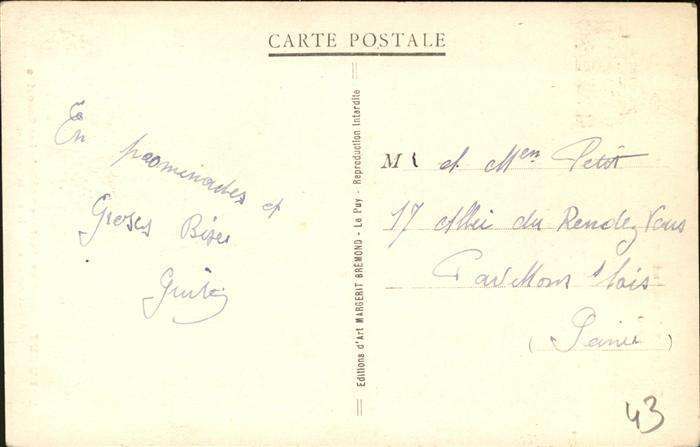 CARTE POSTALE
En promenades et
Groses Bises
Guite
Editions d'Art MARGERIT BRÉMOND - Le Puy - Reproduction Interdite
M et Men Petit
17 Allée du Rendez Vous
Pavillons s/ bois
(Seine)
43